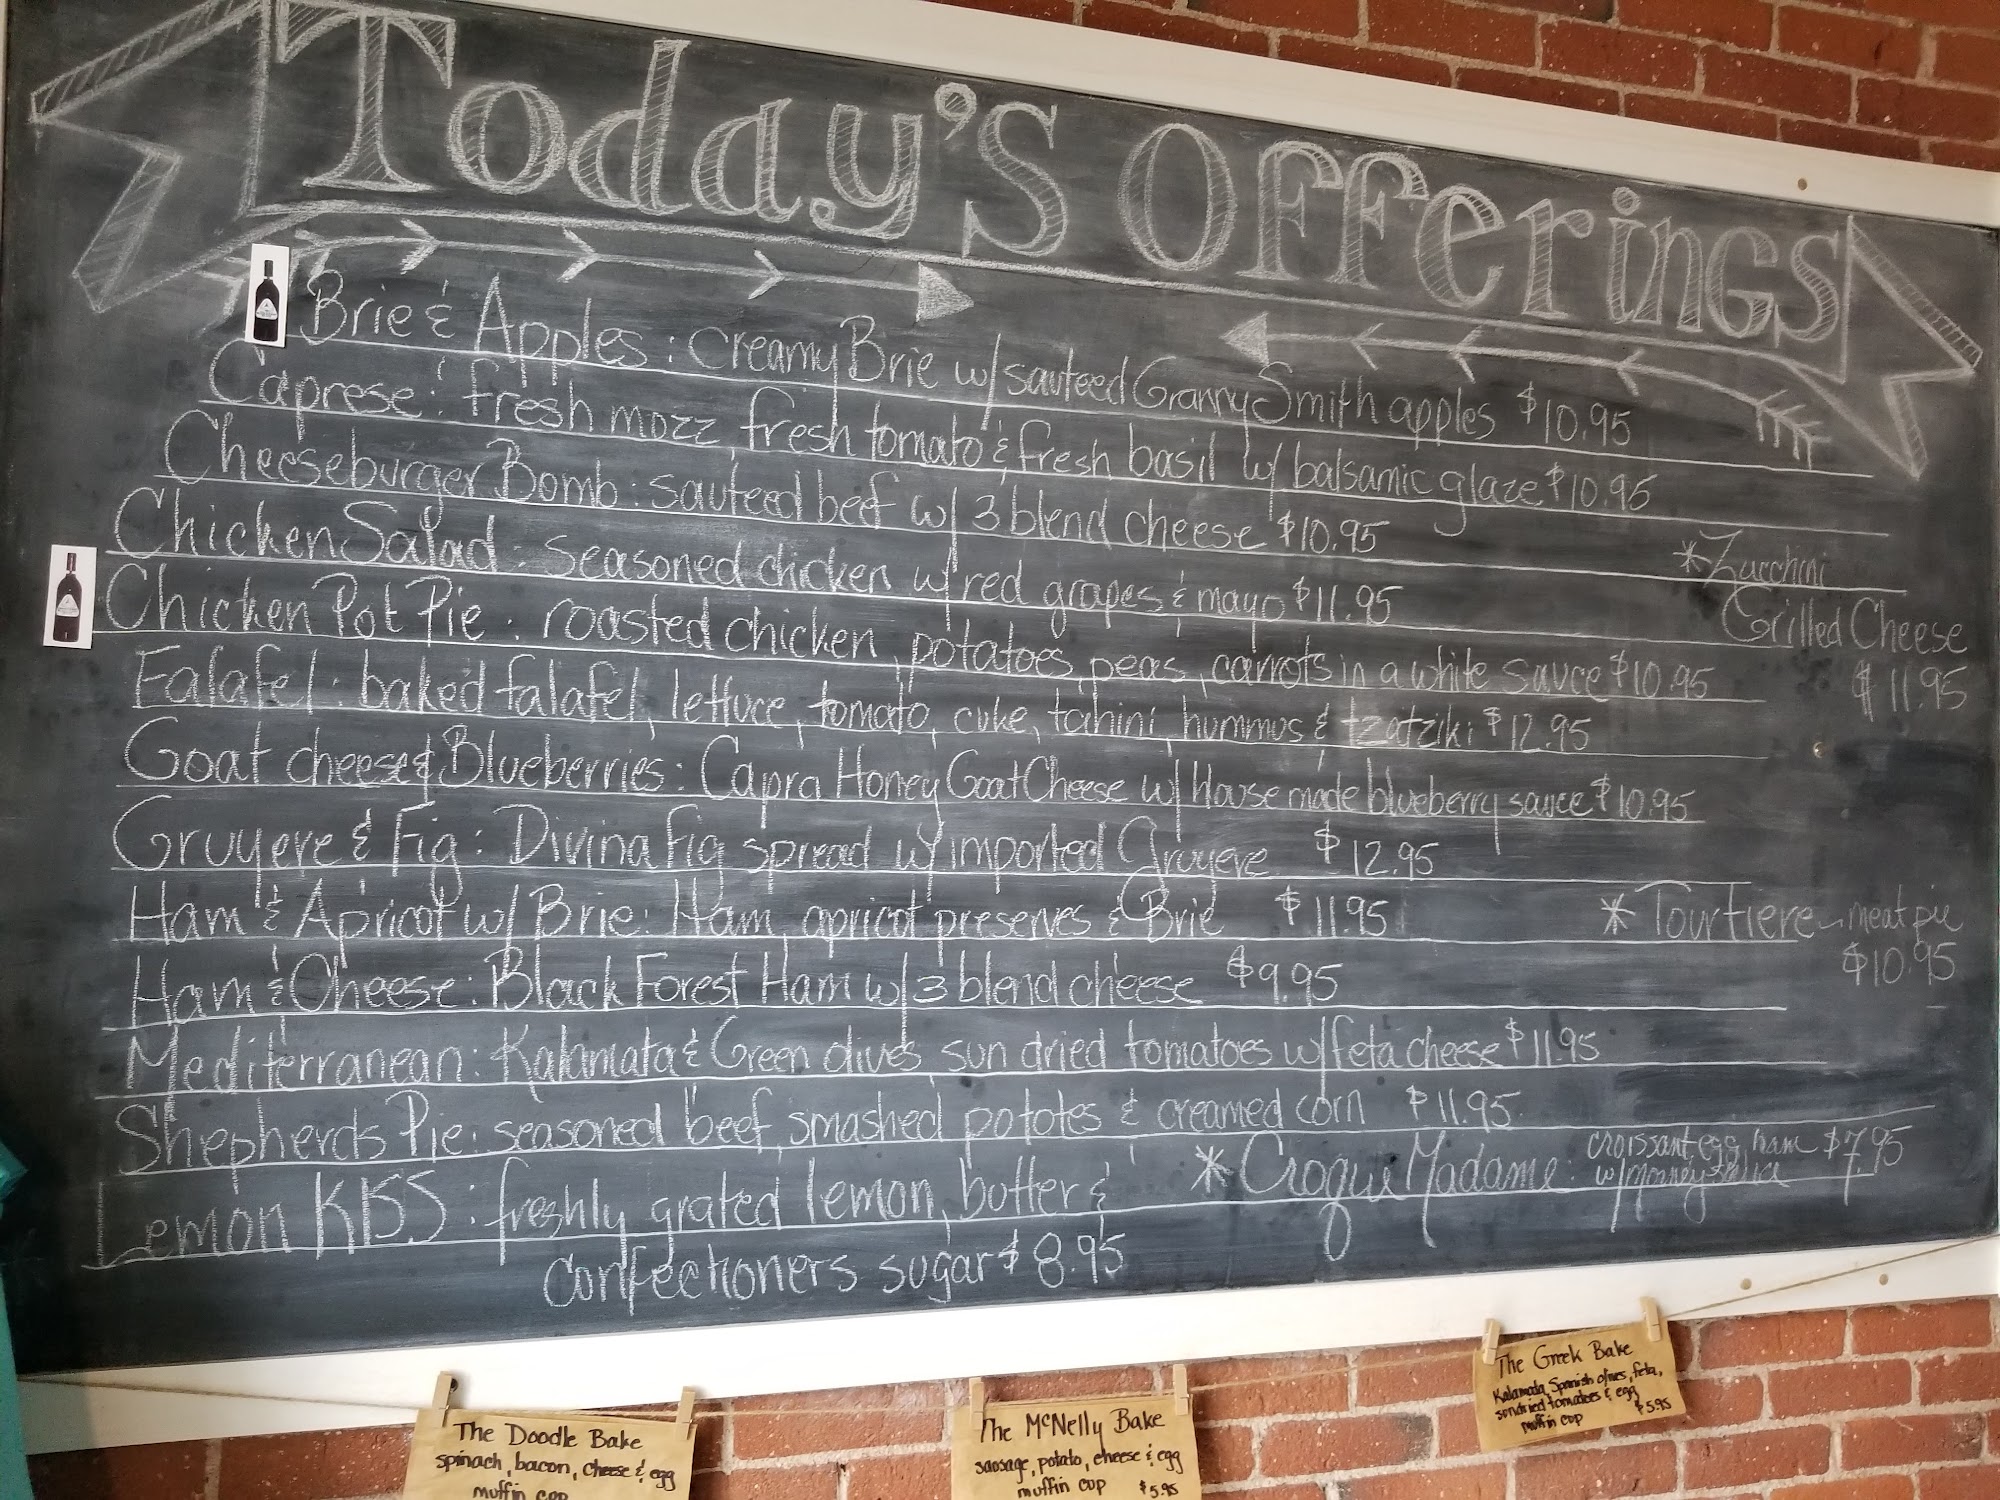 Today's Offerings
Brie & Apples: creamy Brie w/ sauteed Granny Smith apples $10.95
Caprese: fresh mozz, fresh tomato & fresh basil w/ balsamic glaze $10.95
Cheeseburger Bomb: sauteed beef w/ 3 blend cheese $10.95
Chicken Salad: seasoned chicken w/ red grapes & mayo $11.95
Chicken Pot Pie: roasted chicken, potatoes, peas, carrots in a white sauce $10.95
Falafel: baked falafel, lettuce, tomato, cuke, tahini, hummus & tzatziki $12.95
Goat cheese & Blueberries: Capra Honey Goat Cheese w/ House made blueberry sauce $10.95
Gruyere & Fig: Divina Fig spread w/ imported Gruyere $12.95
Ham & Apricot w/ Brie: Ham, apricot preserves & Brie $11.95
Ham & Cheese: Black Forest Ham w/ 3 blend cheese $9.95
Mediterranean: Kalamata & Green olives, sun dried tomatoes w/ feta cheese $11.95
Shepherds Pie: seasoned beef, smashed pototes & creamed corn $11.95
Lemon KISS: freshly grated lemon, butter &
confectioners sugar $8.95
*Zucchini
Grilled Cheese
$11.95
*Tourtiere - meat pie
$10.95
*Croque Madame: croissant, egg, ham $7.95
w/
The Doodle Bake
spinach, bacon, cheese & egg
muffin cup
The McNelly Bake
sausage, potato, cheese & egg
muffin cup $5.95
The Greek Bake
Kalamata, Spanish olives, feta,
sundried tomatoes & egg
muffin cup $5.95